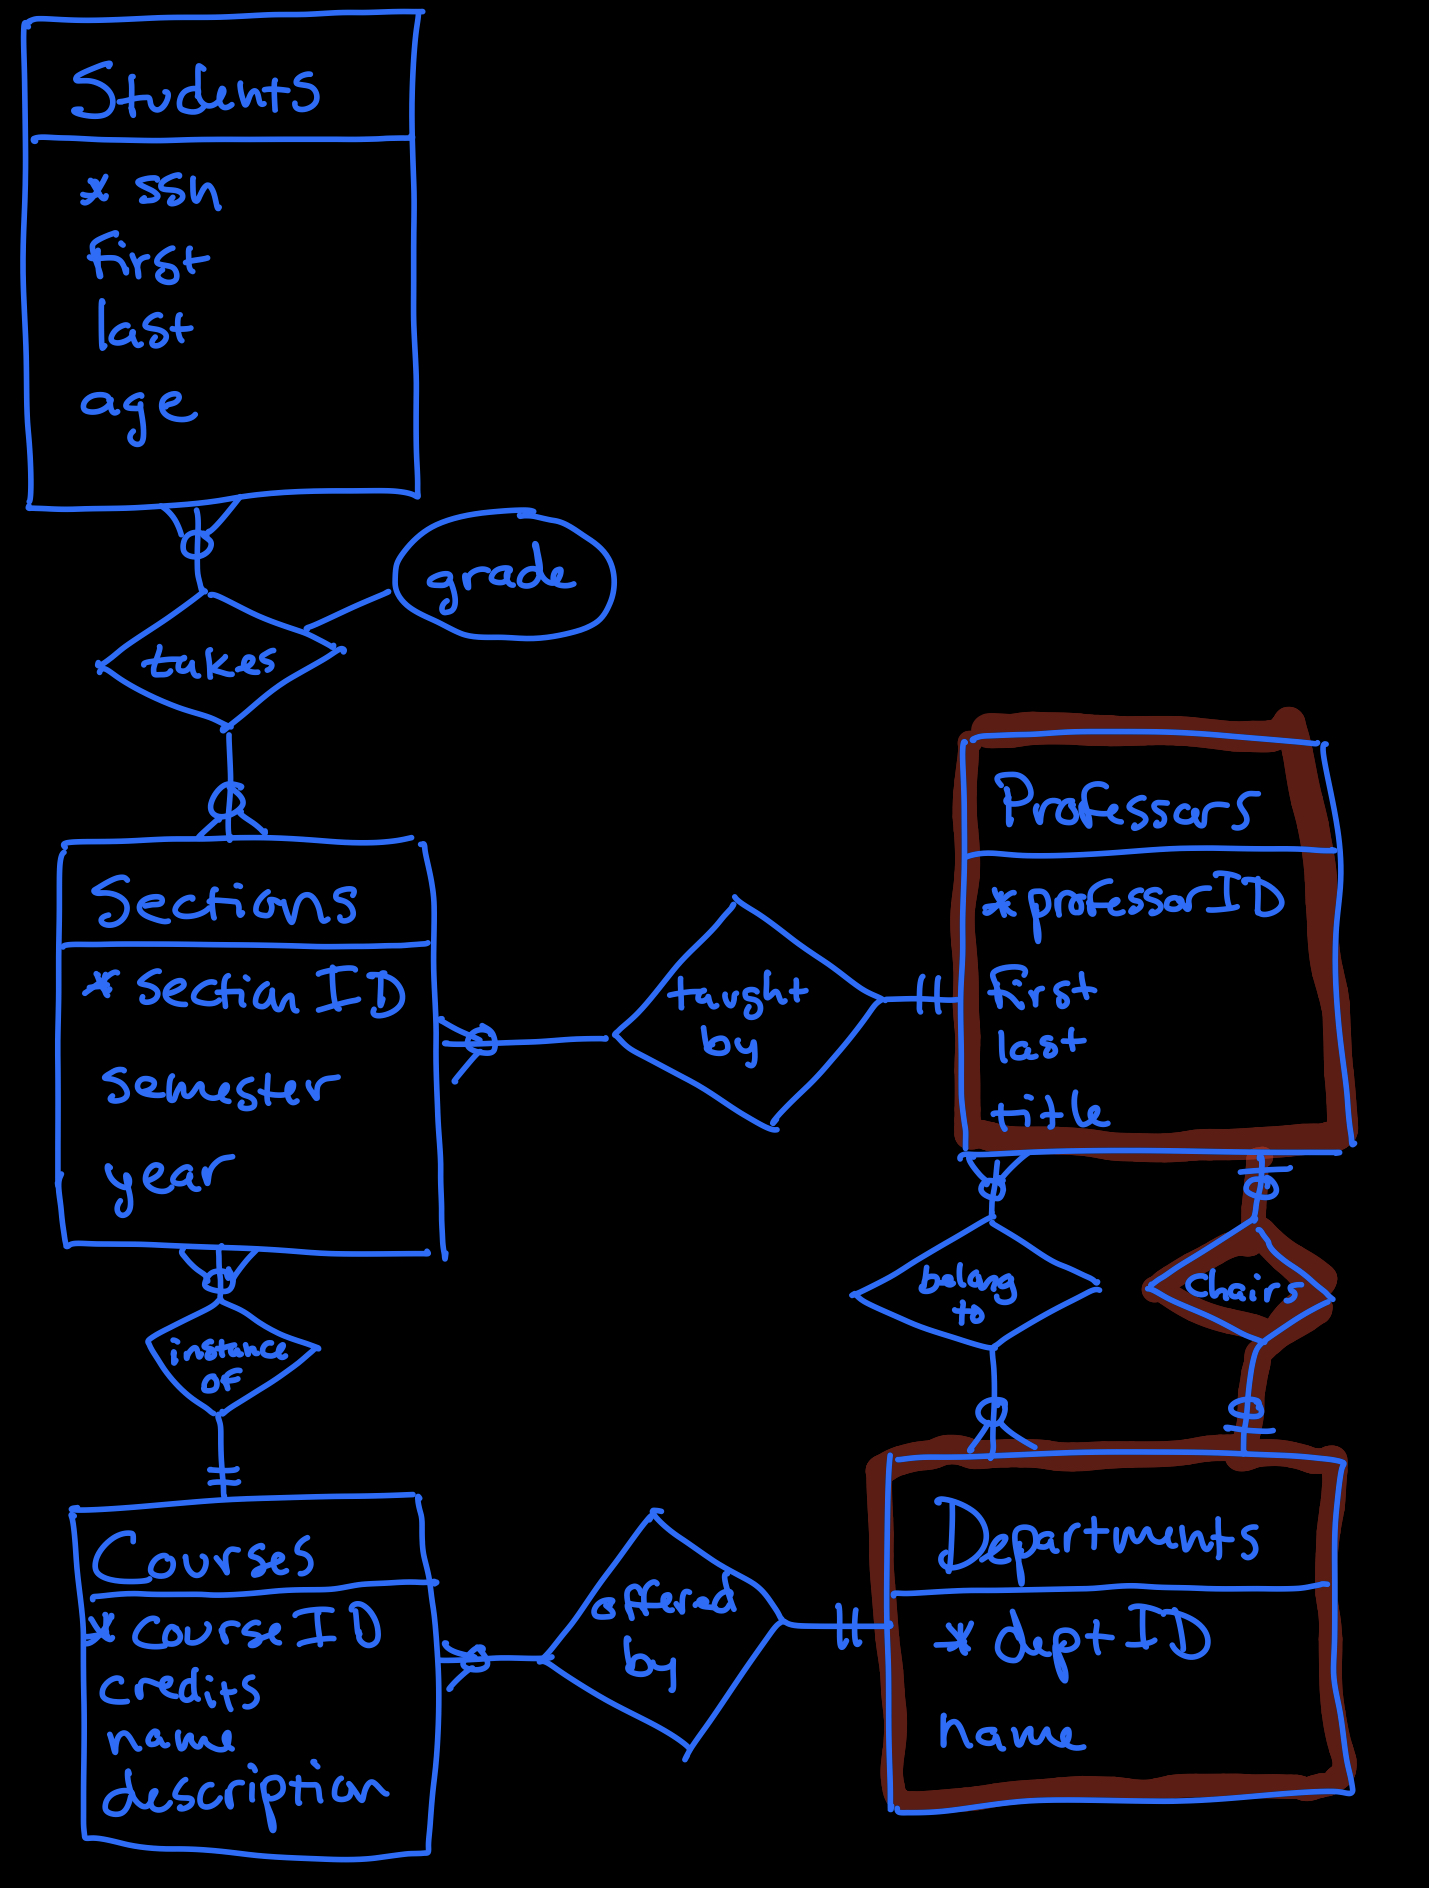 Students
* ssn
first
last
age
grade
takes
Sections
* section ID
semester
year
taught
by
Professors
* professorID
first
last
title
belong
to
Chairs
instance
of
Courses
* Course ID
credits
name
description
offered
by
Departments
* dept ID
name